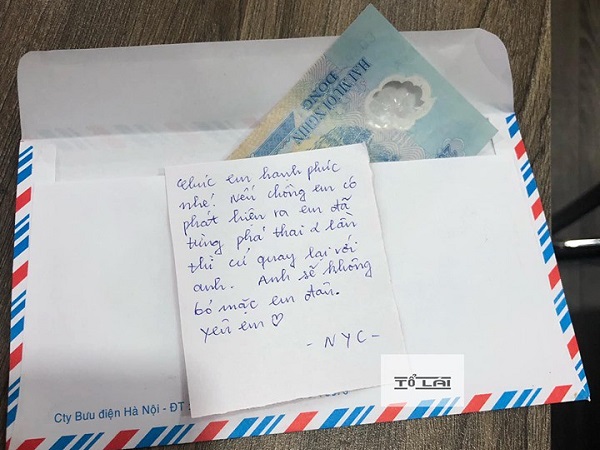 HAI MƯƠI NGHÌN
ĐỒNG
Chúc em hạnh phúc
nhé! Nếu chồng em có
phát hiện ra em đã
từng phá thai 2 lần
thì cứ quay lại với
anh. Anh sẽ không
bỏ mặc em đâu.
Yêu em ♡
- NYC -
TỔ LÁI
Cty Bưu điện Hà Nội - ĐT